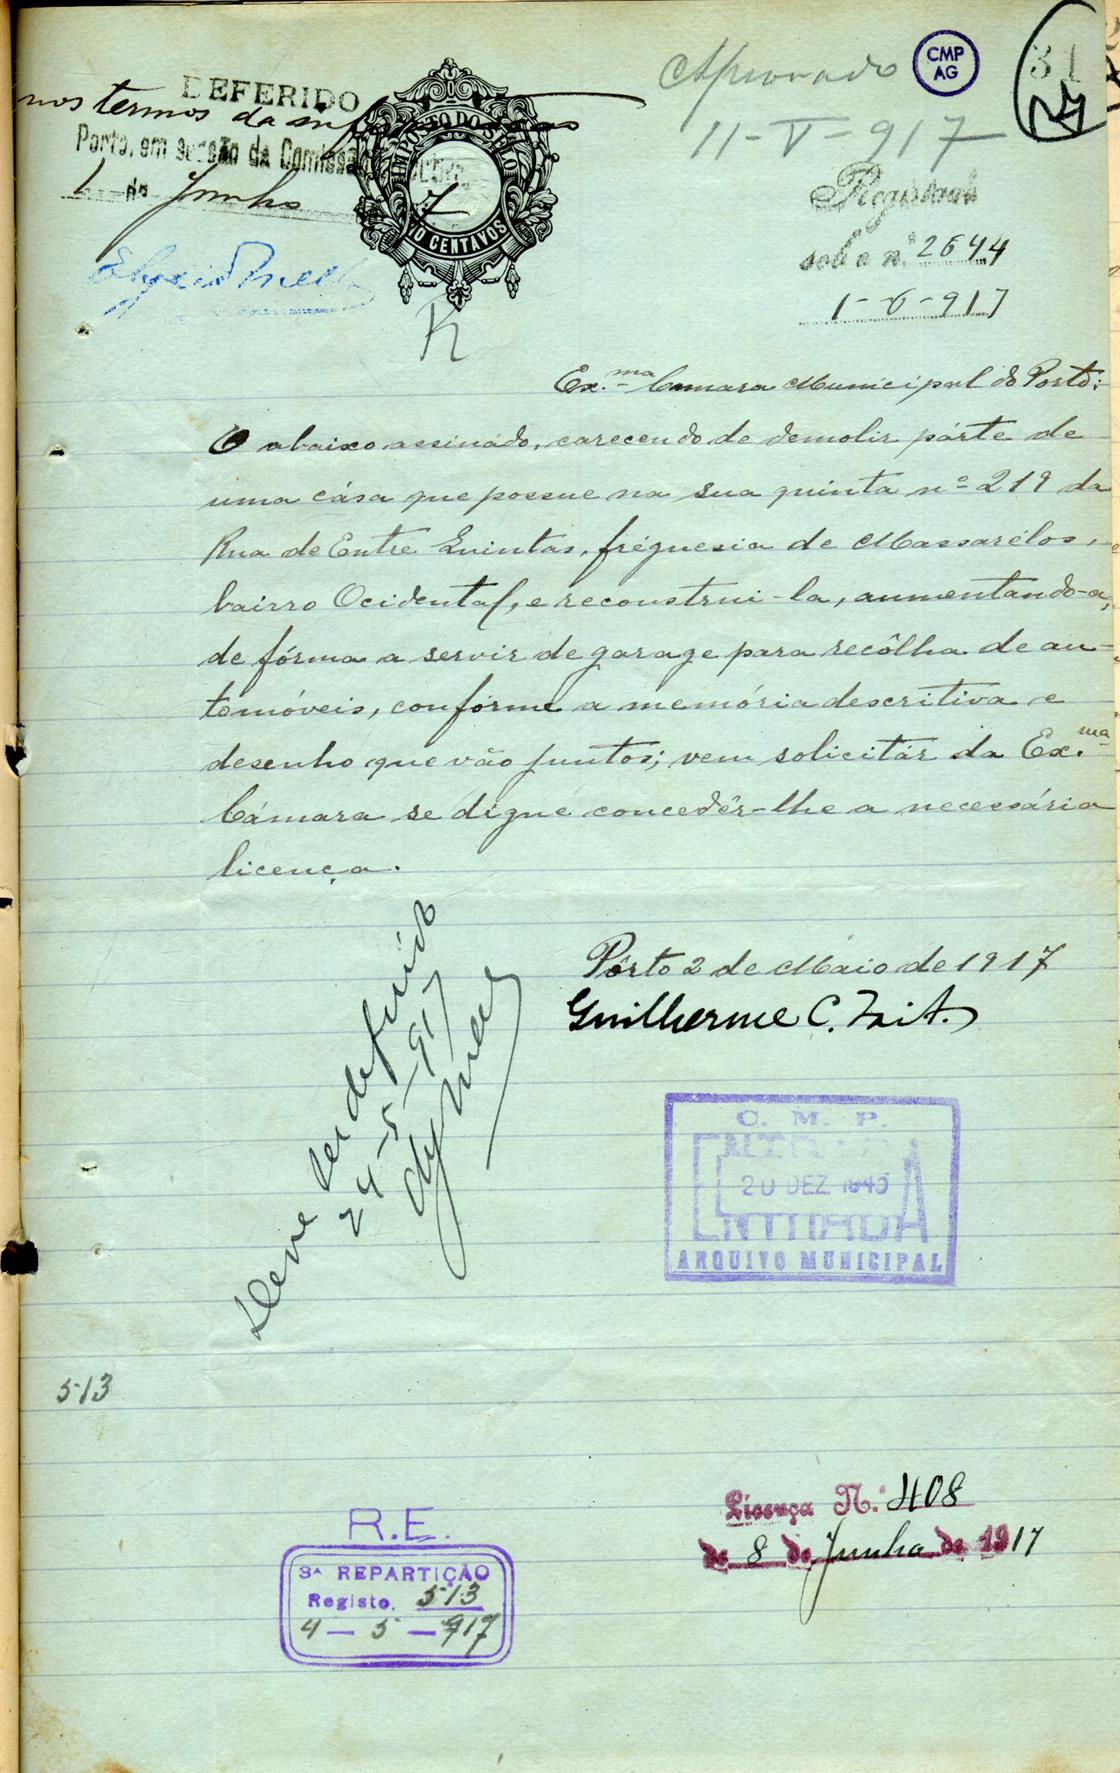 Aprovado
CMP
AG
11-V-917
DEFERIDO
nos termos da
Porto, em sessão da Comissão
1 de Junho de 7
IMPOSTO DO SELO
CENTAVOS
Registado
sob o n.º 2644
1-6-917
Ex.ma Camara Municipal do Porto:
O abaixo assinádo, carecendo de demolir párte de
uma cása que possue na sua quinta nº 219 da
Rua de Entre Quintas, fréguesia de Massarélos,
bairro Ocidental, e reconstrui-la, aumentando-a,
de fórma a servir de garage para recôlha de au-
tomóveis, confórme a memória descritiva e
desenho que vão juntos; vem solicitár da Ex.ma
Cámara se digne concedêr-lhe a necessária
licença.
Pôrto 2 de Maio de 1917
Guilherme C. Tait.
Deve ser deferido
24-5-917
C. M. P.
ENTRADA
20 DEZ 1945
ARQUIVO MUNICIPAL
513
R.E.
3ª REPARTIÇÃO
Registo. 513
4-5-917
Licença N.º 408
de 8 de Junho de 1917